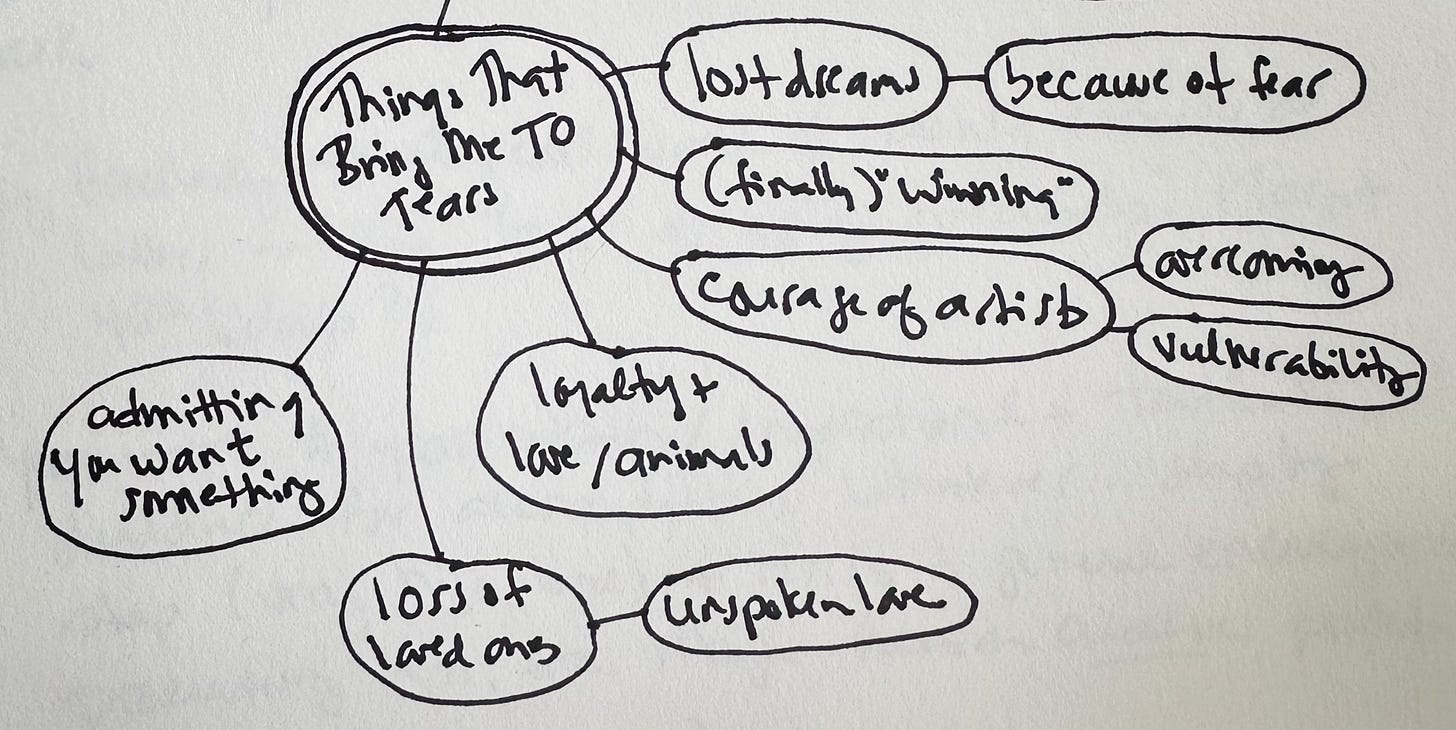 Things That
Bring Me TO
Tears
lost dreams
because of fear
(finally) "winning"
courage of artists
overcoming
vulnerability
loyalty +
love / animals
admitting
you want
something
loss of
loved ones
unspoken love